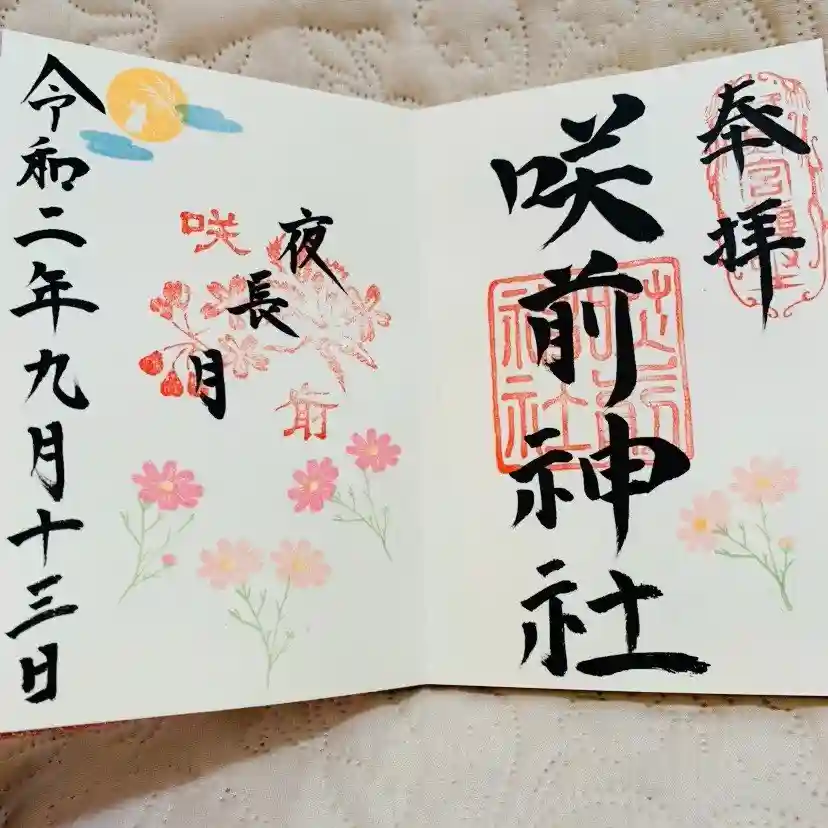 奉拝
咲前神社
咲前神社
夜長月
咲
前
令和二年九月十三日